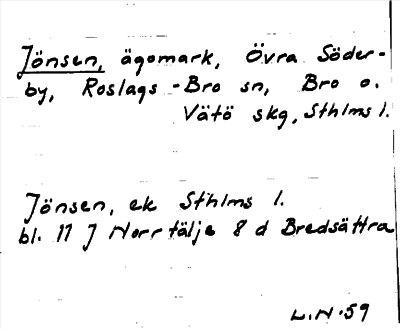 Jönsen, ägomark, Övra Söder-
by, Roslags-Bro sn, Bro o.
Vätö skg, Sthlms l.
Jönsen, ek Sthlms l.
bl. 11 J Norrtälje 8 d Bredsättra
L.N.59